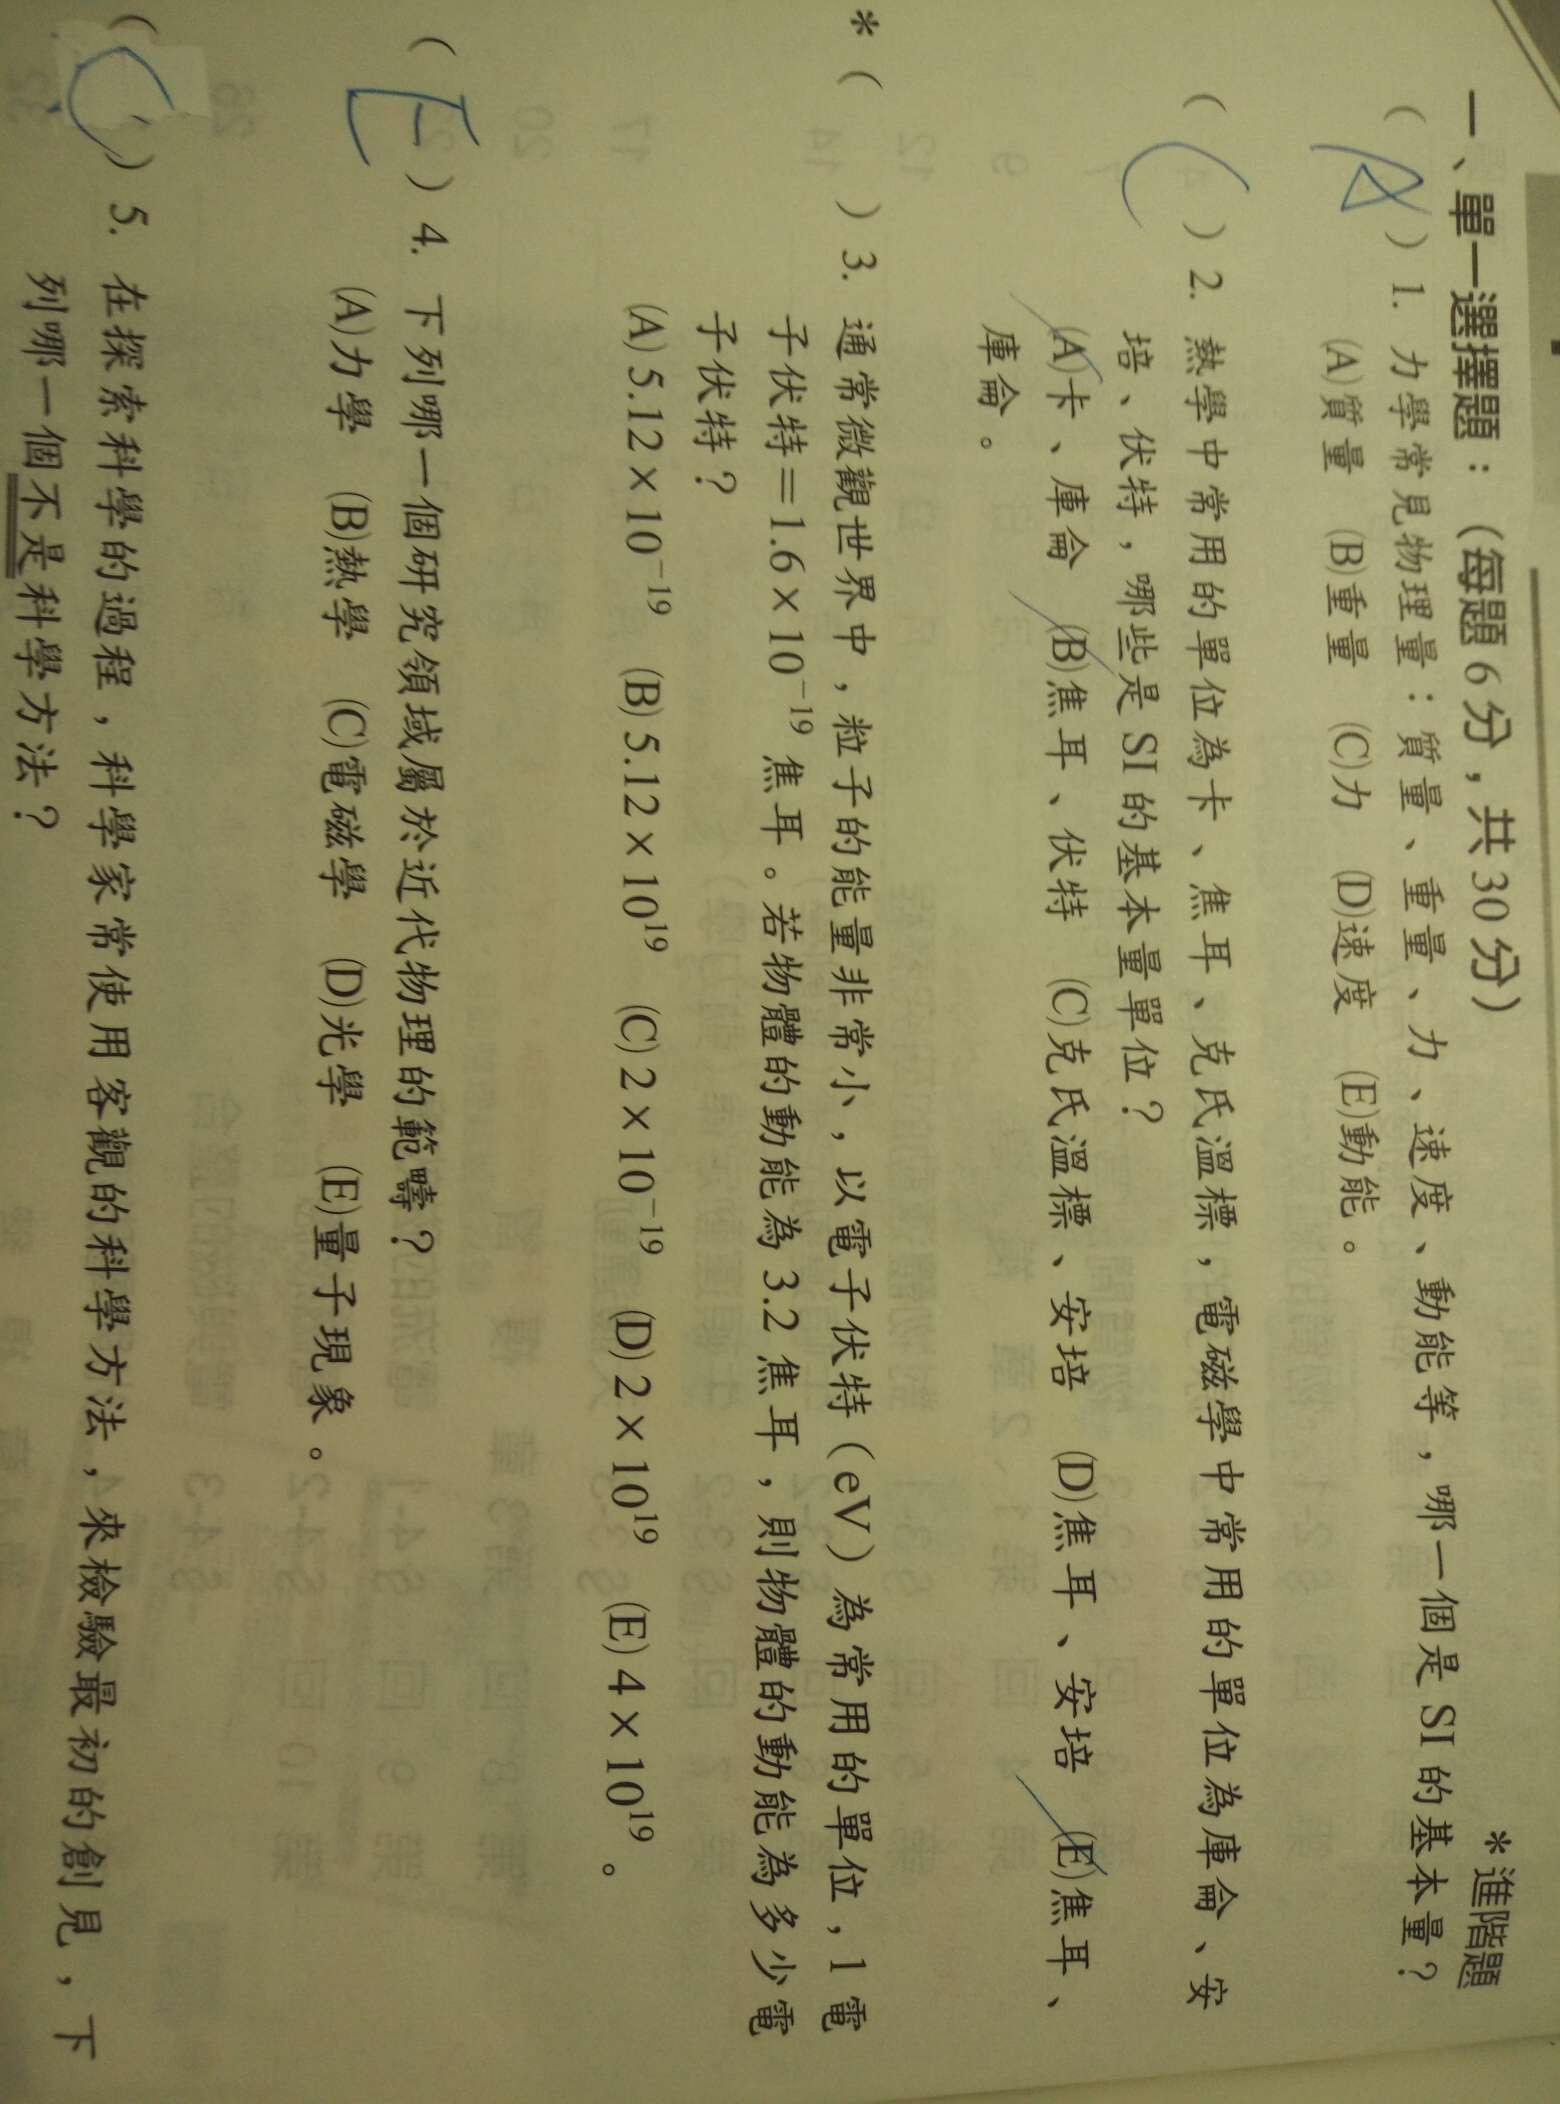 一、單一選擇題：（每題 6 分，共 30 分） *進階題
( A ) 1. 力學常見物理量：質量、重量、力、速度、動能等，哪一個是 SI 的基本量？
(A)質量 (B)重量 (C)力 (D)速度 (E)動能。
( C ) 2. 熱學中常用的單位為卡、焦耳、克氏溫標，電磁學中常用的單位為庫侖、安
培、伏特，哪些是 SI 的基本量單位？
(A)卡、庫侖 (B)焦耳、伏特 (C)克氏溫標、安培 (D)焦耳、安培 (E)焦耳、
庫侖。
*( ) 3. 通常微觀世界中，粒子的能量非常小，以電子伏特（eV）為常用的單位，1 電
子伏特＝1.6 × 10⁻¹⁹ 焦耳。若物體的動能為 3.2 焦耳，則物體的動能為多少電
子伏特？
(A) 5.12 × 10⁻¹⁹ (B) 5.12 × 10¹⁹ (C) 2 × 10⁻¹⁹ (D) 2 × 10¹⁹ (E) 4 × 10¹⁹。
( E ) 4. 下列哪一個研究領域屬於近代物理的範疇？
(A)力學 (B)熱學 (C)電磁學 (D)光學 (E)量子現象。
( C ) 5. 在探索科學的過程，科學家常使用客觀的科學方法，來檢驗最初的創見，下
列哪一個不是科學方法？